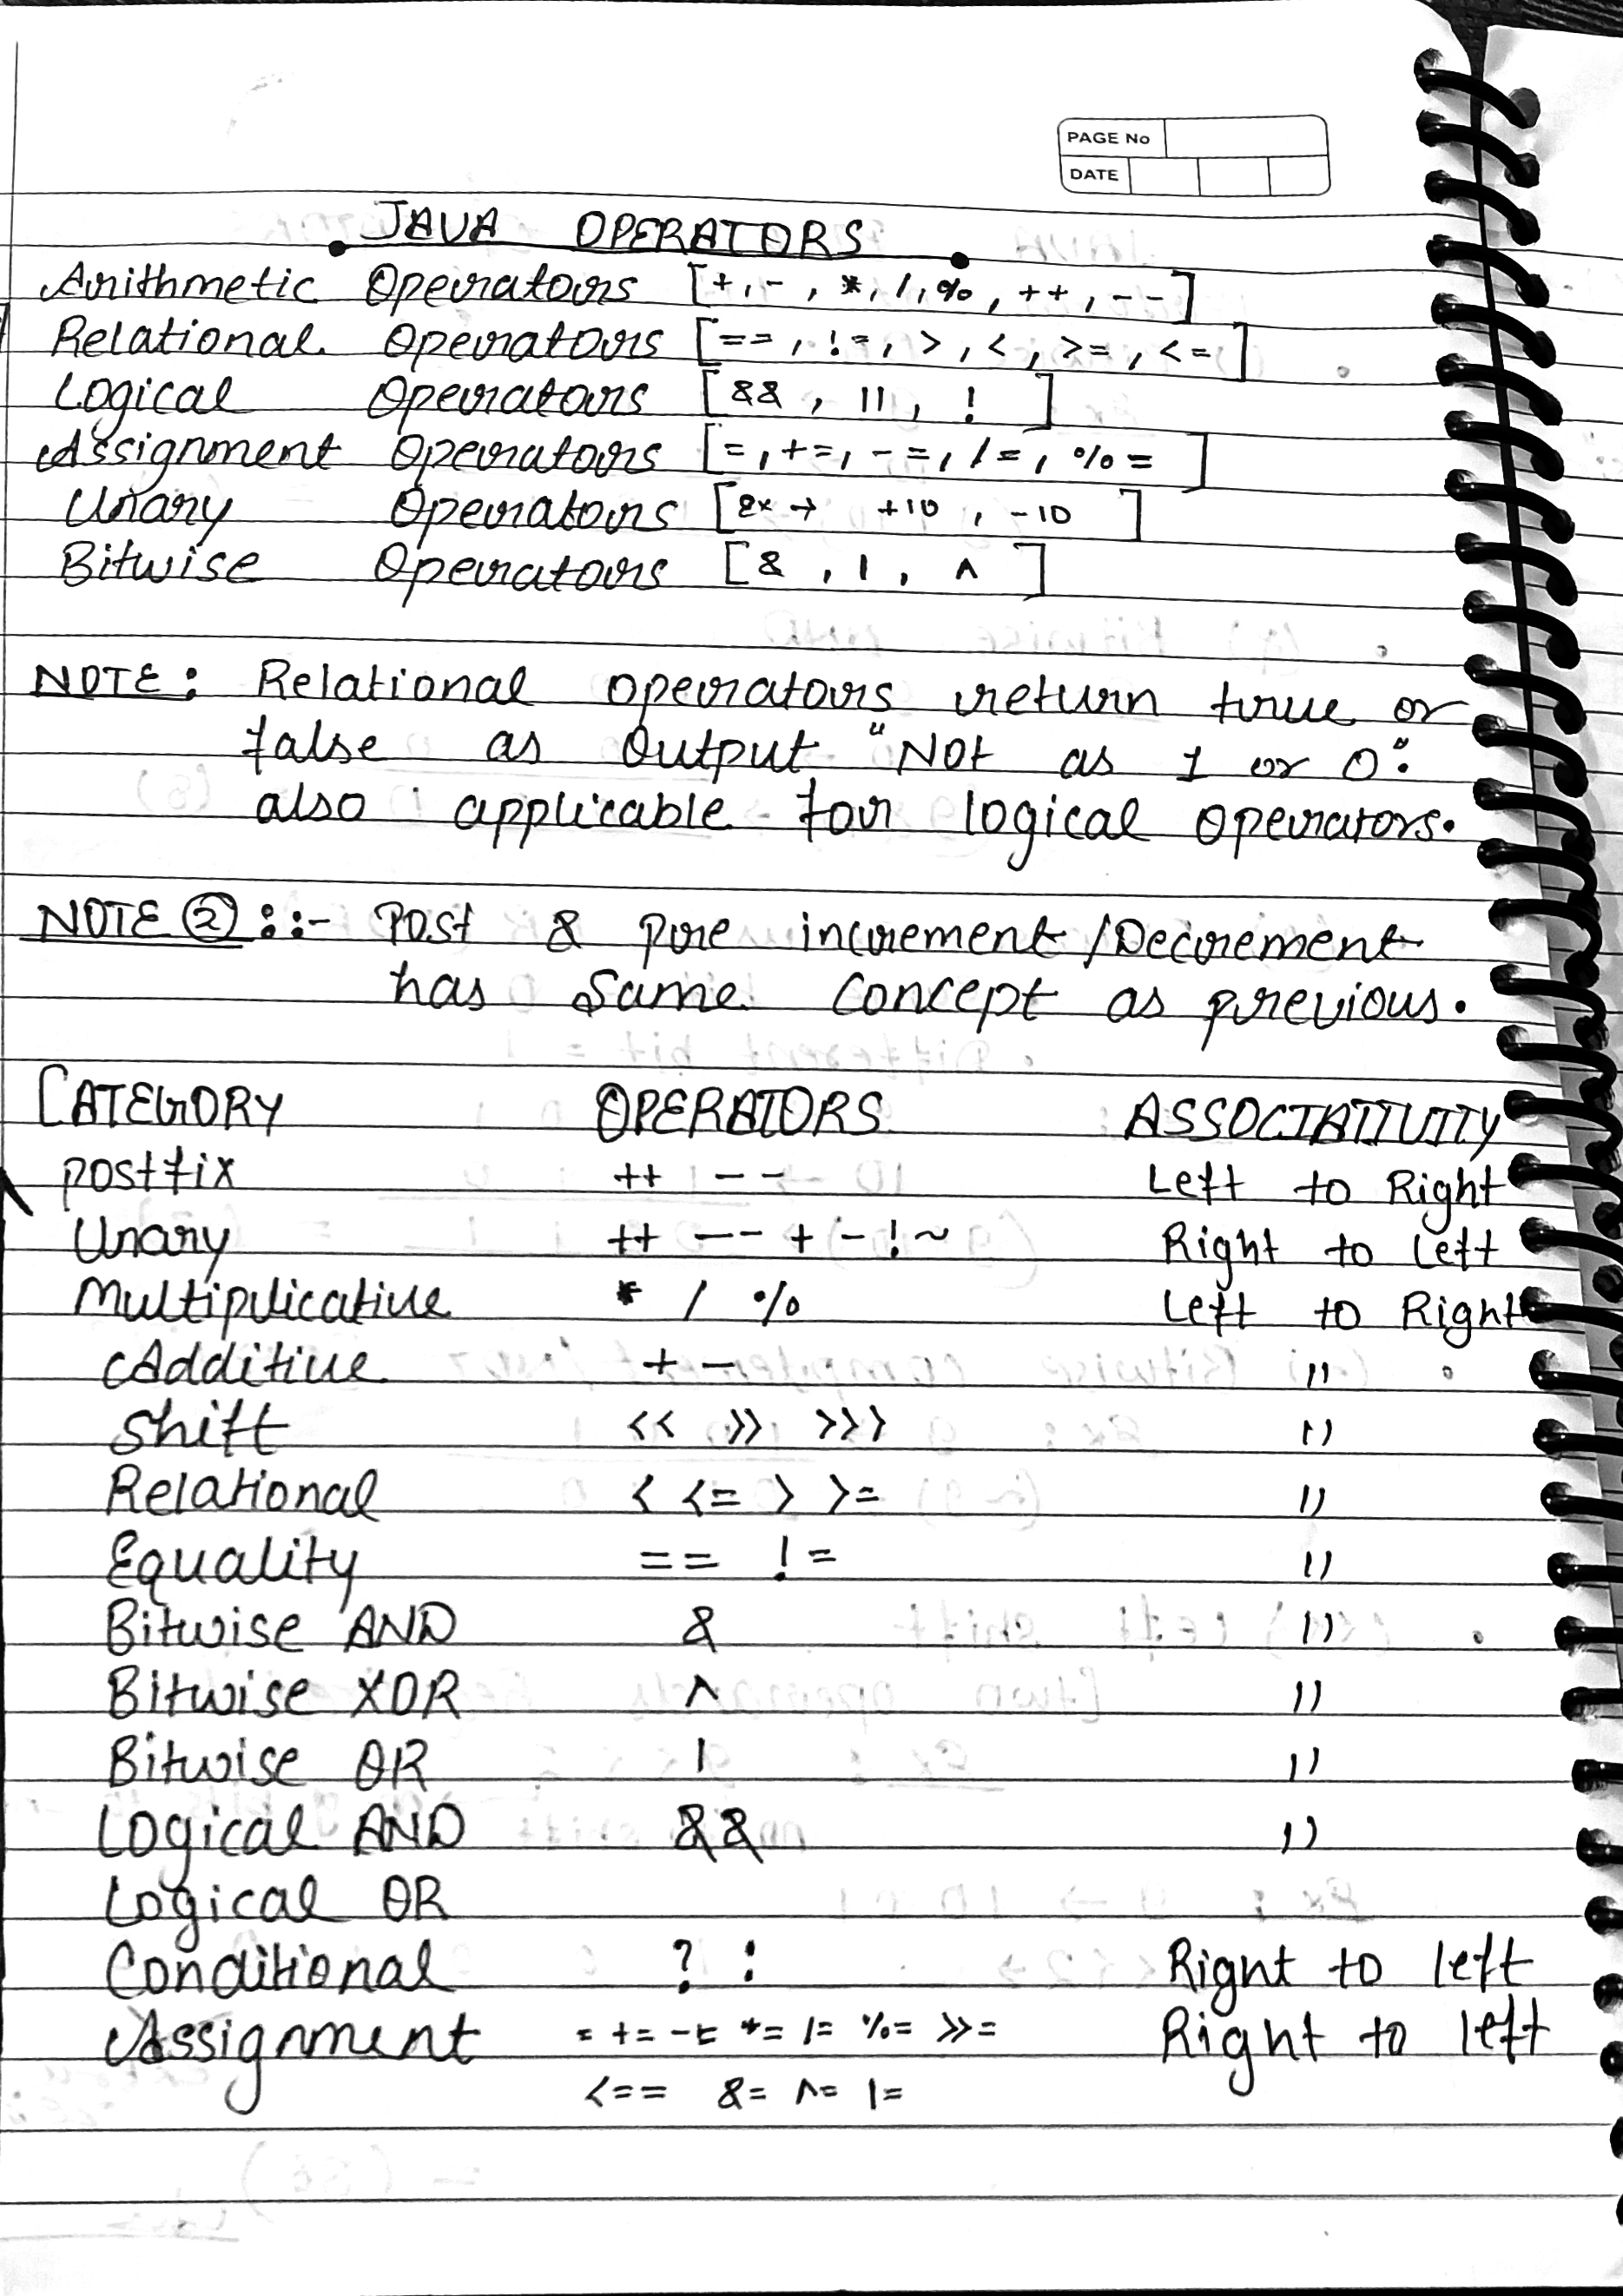 PAGE No
DATE
JAVA OPERATORS
Arithmetic Operators [+, -, *, /, %, ++, --]
Relational Operators [==, !=, >, <, >=, <=]
Logical Operators [&&, ||, !]
Assignment Operators [=, +=, -=, /=, %=]
Unary Operators [ex → +10, -10]
Bitwise Operators [&, |, ^]
NOTE: Relational operators return true or
false as Output "Not as 1 or 0".
also applicable for logical operators.
NOTE ② ::- Post & pre increment/Decrement
has Same Concept as previous.
CATEGORY OPERATORS ASSOCIATIVITY
postfix ++ -- Left to Right
Unary ++ -- + - ! ~ Right to left
Multiplicative * / % Left to Right
Additive + - "
Shift << >> >>> "
Relational < <= > >= "
Equality == != "
Bitwise AND & "
Bitwise XOR ^ "
Bitwise OR | "
Logical AND && "
Logical OR
Conditional ? : Right to left
Assignment = += -= *= /= %= >>= Right to left
<== &= ^= |=